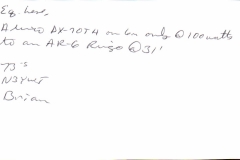 Eq here,
Alinco DX-70TH on 6m only @ 100 watts
to an AR-6 Ringo @ 31'
73's
Brian